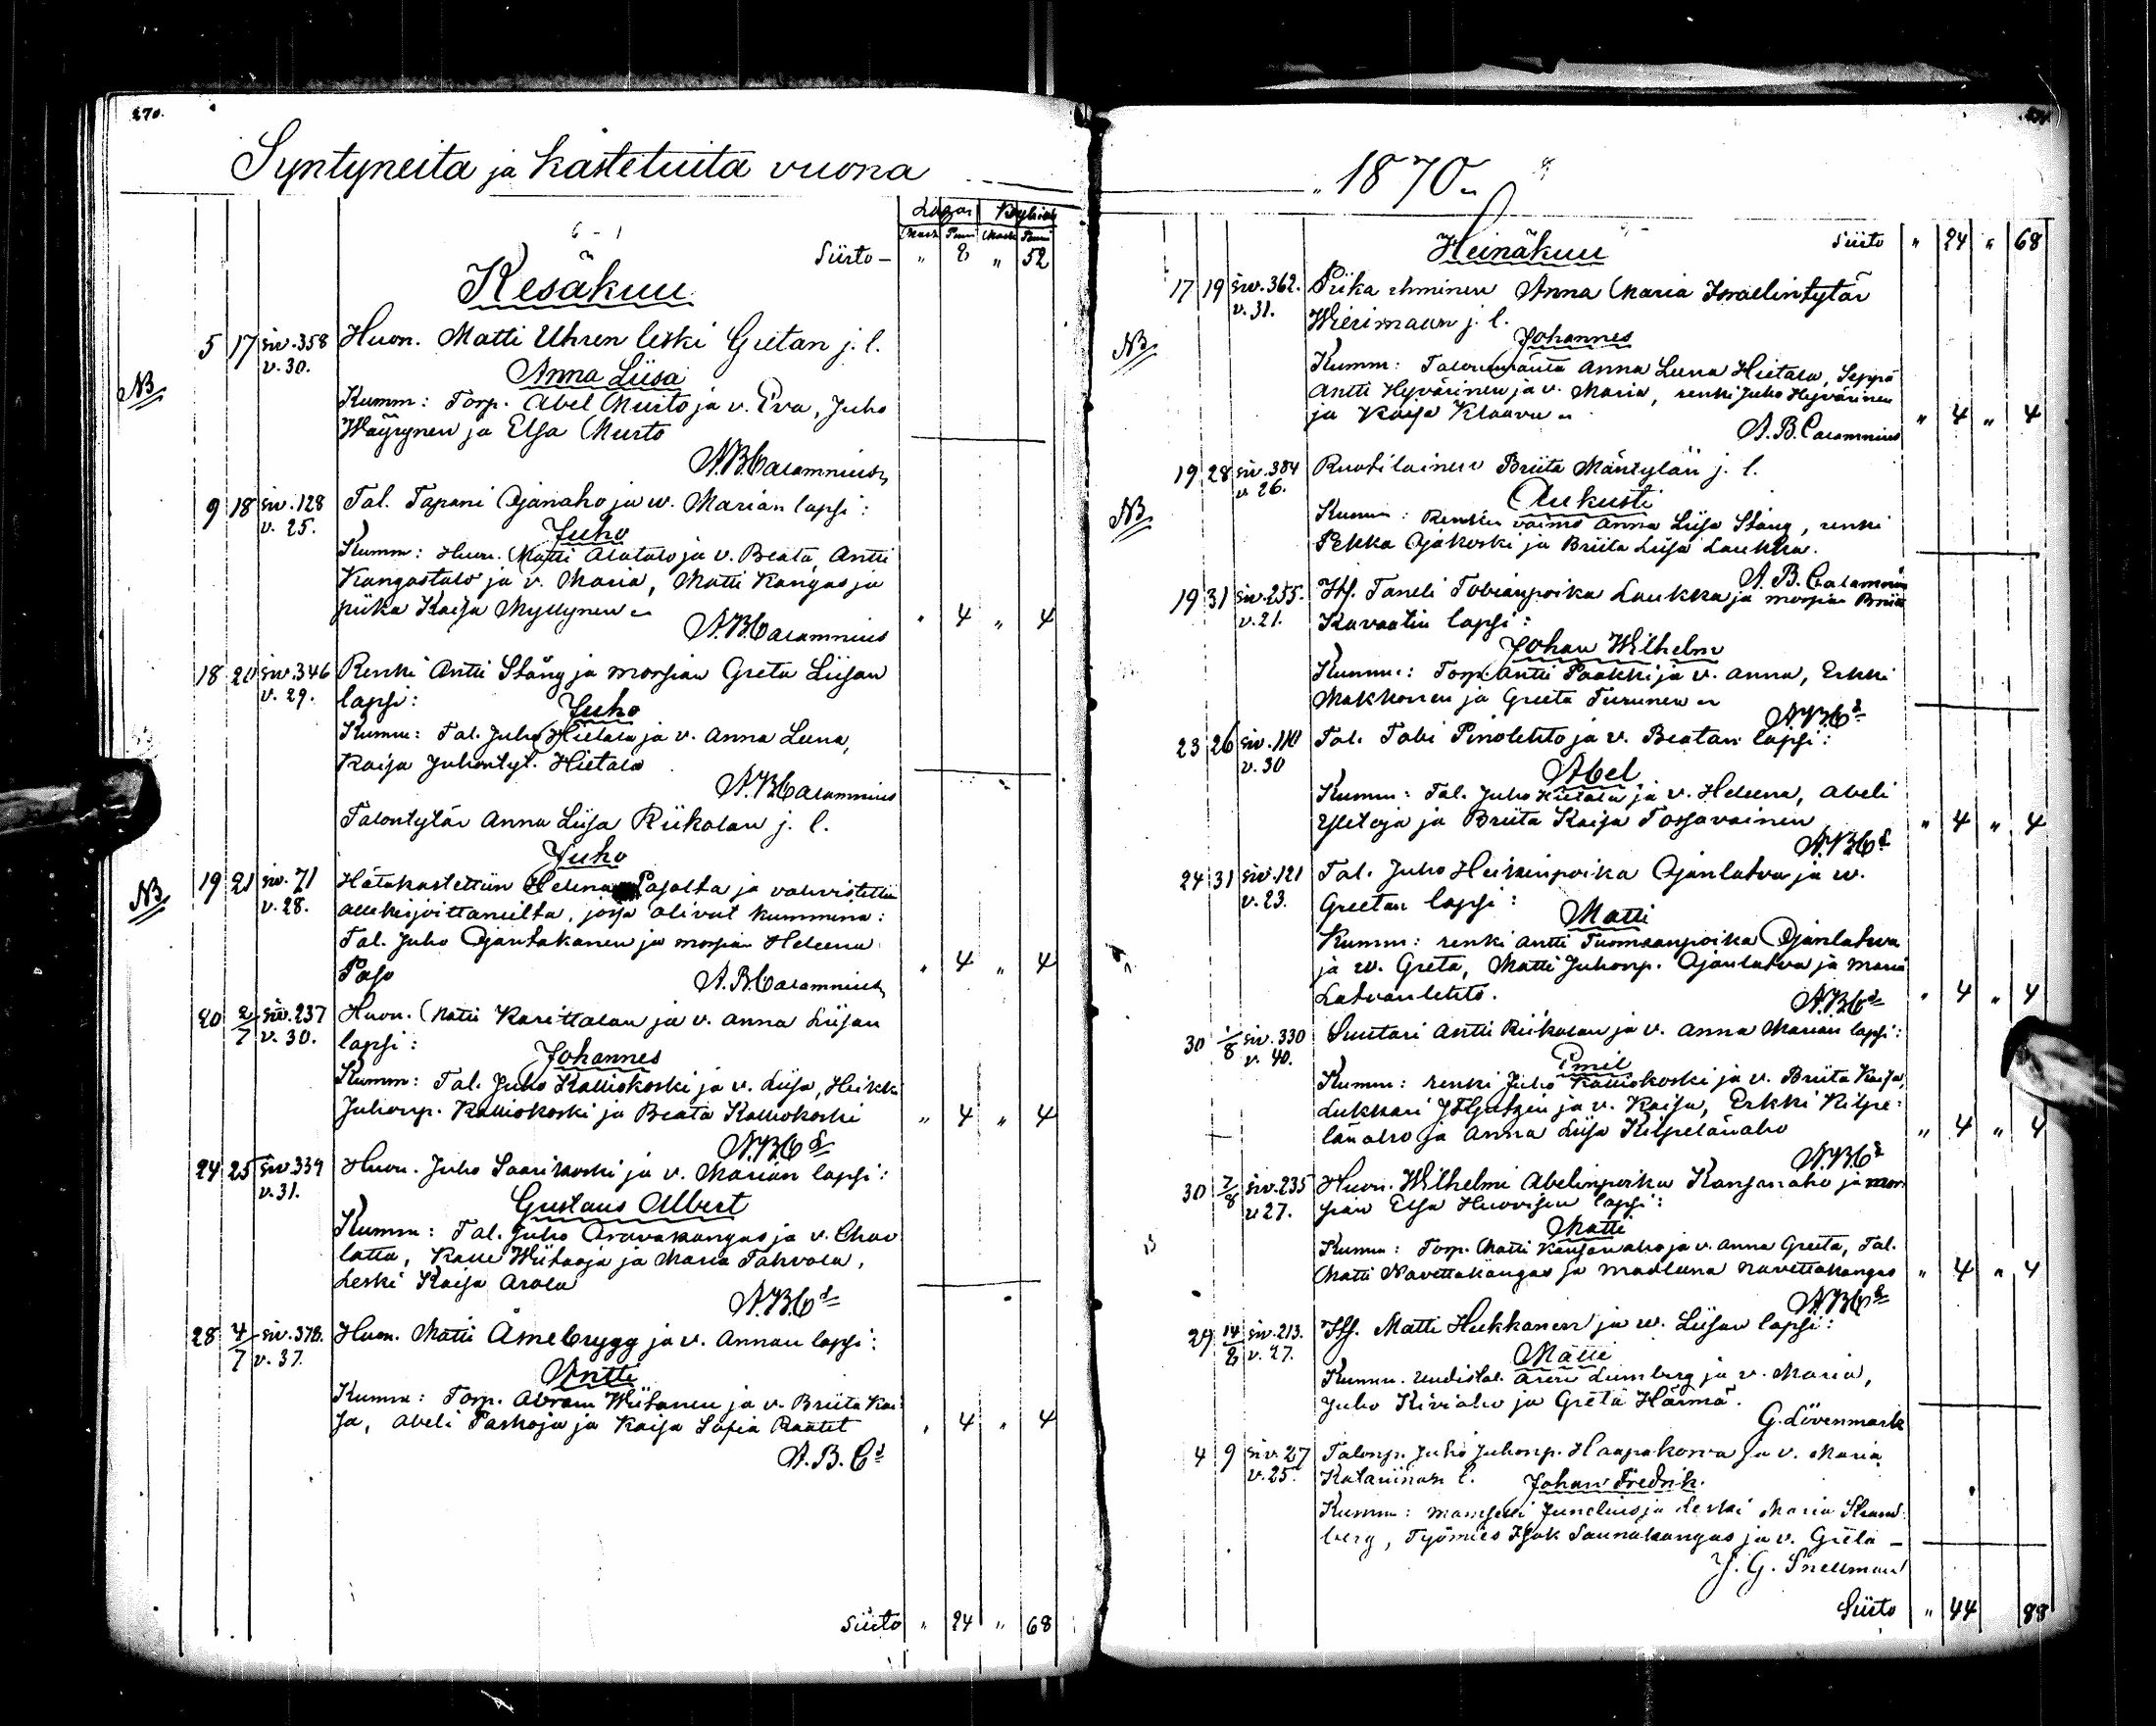 270.
Syntyneitä ja kastetuita vuona
Kesäkuu
Siirto — " 8 " 52
5 17 siv. 358 Huon. Matti Uhren leski Gretan j. l.
v. 30.
Anna Liisa
NB
Kumm: Torp. Abel Murto ja v. Eva, Juho
Wäyrynen ja Elsa Murto
A. B. Calamnius
9 18 siv. 128 Tal. Tapani Ojanaho ja w. Marian lapsi:
v. 25.
Juho
Kumm: Huon. Matti Alatalo ja v. Beata, Antti
Kangastalo ja v. Maria, Matti Kangas ja
piika Kaisa Myllynen
" 4 " 4
A. B. Calamnius
18 20 siv. 346 Renki Antti Stång ja morsian Greta Liisan
v. 29. lapsi:
Juho
Kumm: Tal. Juho Hietala ja v. Anna Leena,
Kaisa Juhontyt. Hietala
A. B. Calamnius
Talontytär Anna Liisa Riikolan j. l.
Juho
NB
19 21 siv. 71 Hätäkastettiin Helena Pasolta ja vahvistettiin
v. 28. allekirjoittaneilta, jossa olivat kummina:
Tal. Juho Ojantakanen ja morsian Heleena
Paso
" 4 " 4
A. B. Calamnius
20 2/7 siv. 237 Huon. Matti Karittalan ja v. Anna Liisan
v. 30. lapsi:
Johannes
Kumm: Tal. Juho Kalliokoski ja v. Liisa, Heikki
Juhonp. Kalliokoski ja Beata Kalliokoski " 4 " 4
A. B. Cs
24 25 siv. 339 Huon. Juho Saarikoski ja v. Marian lapsi:
v. 31.
Gustaus Albert
Kumm: Tal. Juho Aravakangas ja v. Char
lotta, Kalle Wiitaoja ja Maria Tahvola,
Leski Kaisa Arola
A. B. Cs
28 4/7 siv. 378. Huon. Matti Åmebrygg ja v. Annan lapsi:
v. 37.
Antti
Kumm: Torp. Abram Wiitanen ja v. Briita Kai
sa, Abeli Paskoja ja Kaisa Sofia Raatet " 4 " 4
A. B. Cs
Siirto " 24 " 68
1870.
Heinäkuu
Siirto " 24 " 68
17 19 siv. 362. Piika Anna Maria Israelintytär
v. 31. Wierimaan j. l.
Johannes
NB
Kumm: Talonemäntä Anna Leena Hietala, Seppä
Antti Hyvärinen ja v. Maria, renki Juho Hyvärinen
ja Kaisa Klaavu " 4 " 4
A. B. Calamnius
19 28 siv. 384 Ruotilainen Briita Mäntylän j. l.
v. 26.
Aukusti
NB
Kumm: Renkin vaimo Anna Liisa Stång, renki
Pekka Ojakoski ja Briita Liisa Laukka.
A. B. Calamnius
19 31 siv. 255. Its. Taneli Tobianpoika Laukka ja morsian Briita
v. 21. Kavaatin lapsi:
Johan Wilhelm
Kumm: Torp. Antti Paakki ja v. Anna, Erkki
Makkonen ja Greeta Turunen
A. B. Cs
23 26 siv. 110 Tal. Tobi Pinolehto ja v. Beatan lapsi:
v. 30
Abel
Kumm: Tal. Juho Hietala ja v. Heleena, Abeli
Ylitoja ja Briita Kaisa Tossavainen " 4 " 4
A. B. Cs
24 31 siv. 121 Tal. Juho Heikinpoika Ojanlatva ja w.
v. 23. Greetan lapsi:
Matti
Kumm: renki Antti Tuomaanpoika Ojanlatva
ja w. Greta, Matti Juhonp. Ojanlatva ja Maria
Latvanlehto. " 4 " 4
A. B. Cs
30 1/8 siv. 330 Suutari Antti Riikolan ja v. Anna Marian lapsi:
v. 40.
Emil
Kumm: renki Juho Kalliokoski ja v. Briita Kaisa,
Lukkari ja v. Kaisa, Erkki Kilpe-
länaho ja Anna Liisa Kilpelänaho " 4 " 4
A. B. Cs
30 7/8 siv. 235 Huon. Wilhelmi Abelinpoika Kansanaho ja mor
v. 27. sian Elsa Huovisen lapsi:
Matti
Kumm: Torp. Matti Kansanaho ja v. Anna Greeta, Tal.
Matti Navettakangas ja Madleena Navettakangas " 4 " 4
A. B. Cs
29 14/8 siv. 213. Its. Matti Hukkanen ja w. Liisan lapsi:
v. 27.
Matti
Kumm. Uudistal. Lumberg ja v. Maria,
Juho Kiviaho ja Greta Härmä.
G. Lövenmark
4 9 siv. 27 Talonp. Juho Juhonp. Haapakorva ja v. Maria
v. 25. Katariinan l. Johan Fredrik.
Kumm: mamselli Junelius ja Leski Maria Strand
berg, Työmies Isak Saunakangas ja v. Greta —
J. G. Snellman
Siirto " 44 88